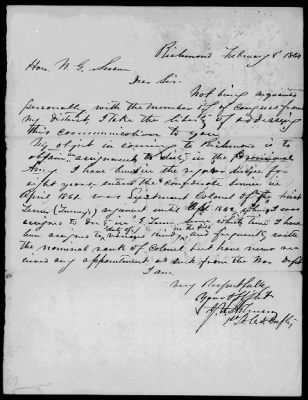 Richmond February 8 1864
Hon. W. G.
Dear Sir
Not being acquainted
personally with the member of Congress from
my District, I take the liberty of addressing
this communication to you
My object in coming to Richmond is to
obtain assignment to duty in the Provisional
Army I have been in the regular service for
eight years entered the Confederate service in
April 1861 was Lieutenant Colonel of the first
until Sept 1861
assigned to duty in E. Tenn. since which time I have
been assigned to duty of various kind in the field and frequently with
the nominal rank of Colonel, but have never re
ceived any appointment as such from the War Dept
I am
Very Respectfully
Your Obt Svt